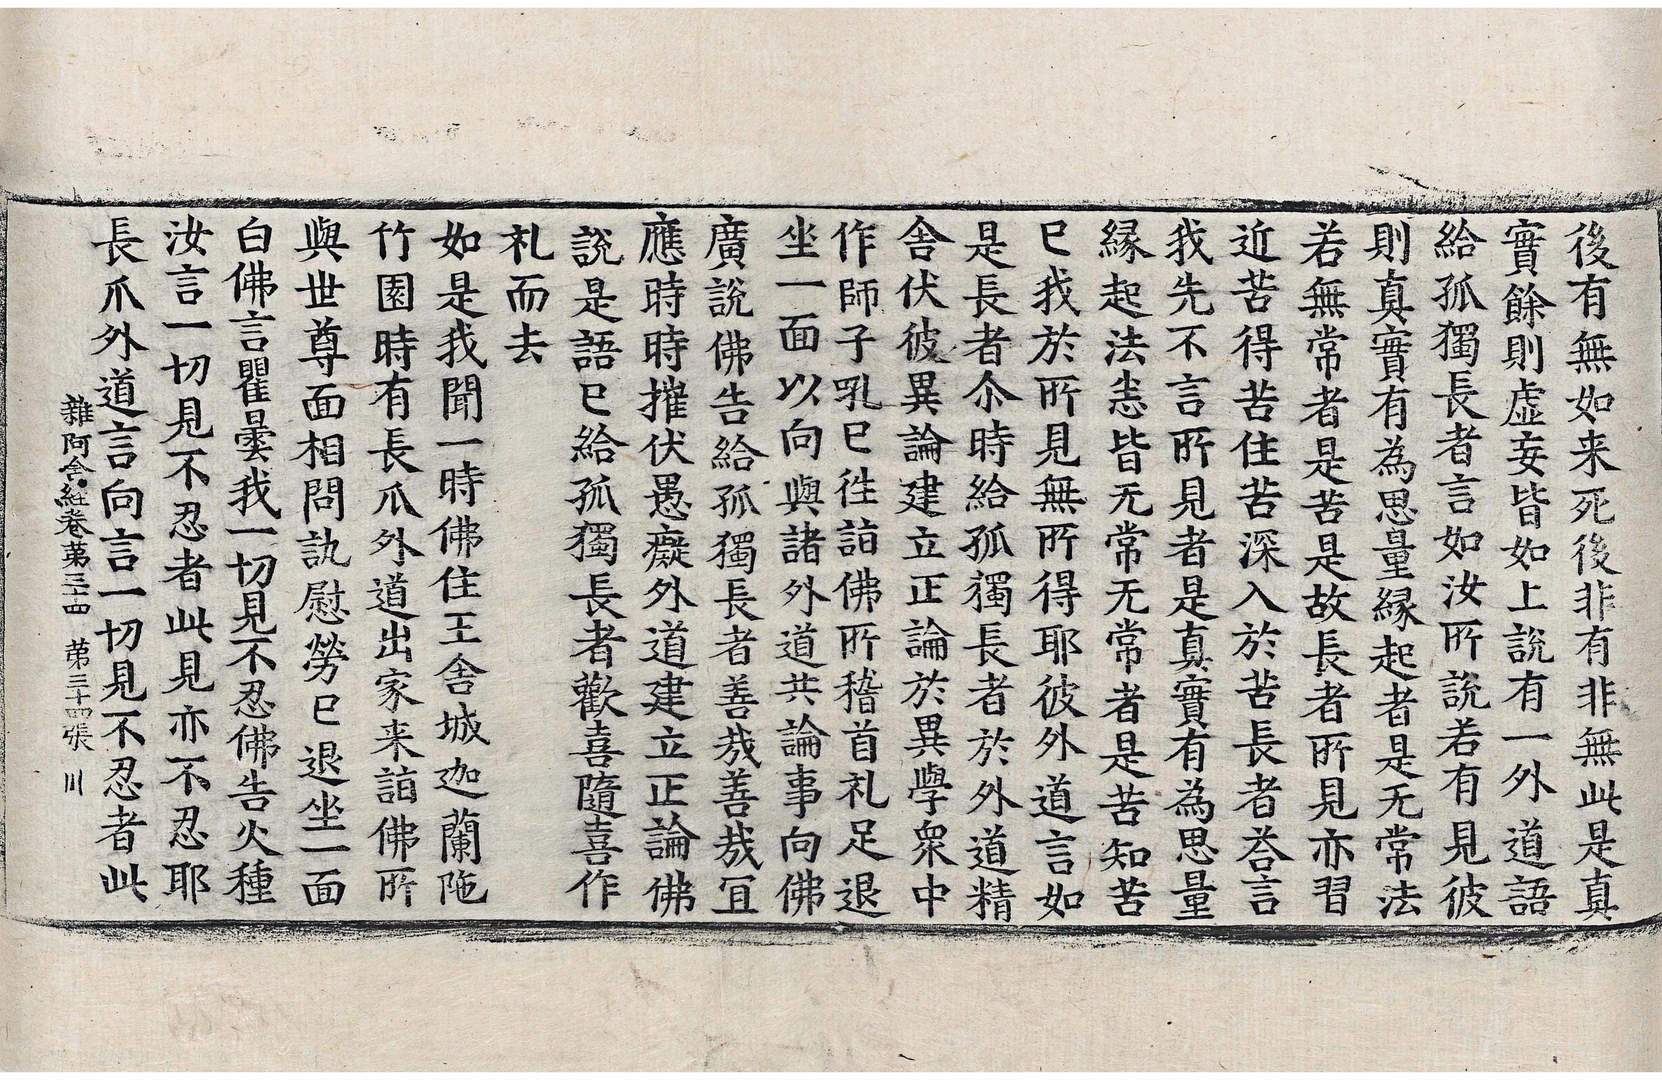 後有無如来死後非有非無此是真
實餘則虚妄皆如上說有一外道語
給孤獨長者言如汝所說若有見彼
則真實有為思量緣起者是无常法
若無常者是苦是故長者所見亦習
近苦得苦住苦深入於苦長者荅言
我先不言所見者是真實有為思量
緣起法悉皆无常无常者是苦知苦
已我於所見無所得耶彼外道言如
是長者尒時給孤獨長者於外道精
舍伏彼異論建立正論於異學衆中
作師子吼已徃詣佛所稽首礼足退
坐一面以向與諸外道共論事向佛
廣說佛告給孤獨長者善哉善哉冝
應時時摧伏愚癡外道建立正論佛
說是語已給孤獨長者歡喜隨喜作
礼而去
如是我聞一時佛住王舍城迦蘭陁
竹園時有長爪外道出家来詣佛所
與世尊面相問訊慰勞已退坐一面
白佛言瞿曇我一切見不忍佛告火種
汝言一切見不忍者此見亦不忍耶
長爪外道言向言一切見不忍者此
雜阿含經卷第三十四　第三十四張　川